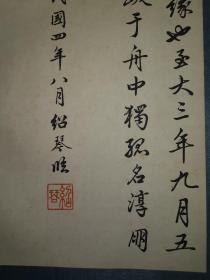 緣也至大三年九月五
跋于舟中獨孤名淳朋
民國四年八月紹琴臨